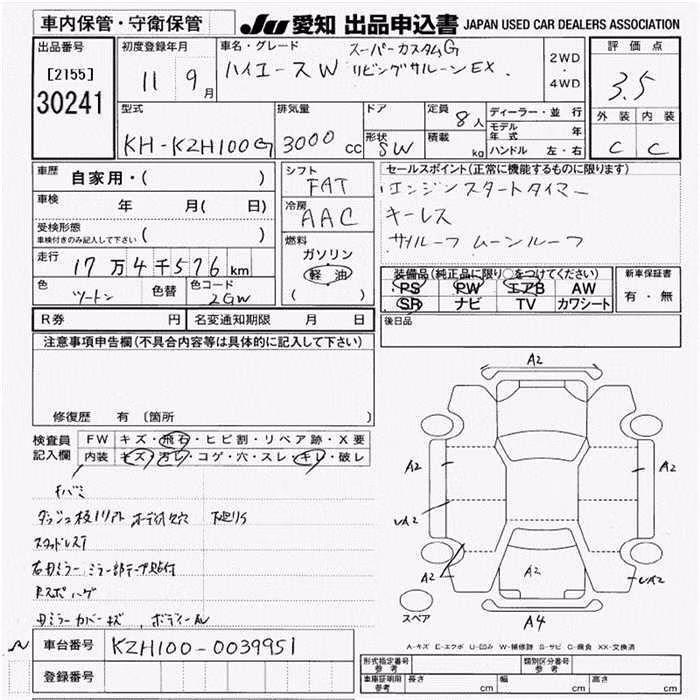 車内保管・守衛保管 JU 愛知 出品申込書 JAPAN USED CAR DEALERS ASSOCIATION
出品番号 初度登録年月 車名・グレード スーパーカスタムG 評価点
[2155] 30241 11 9月 ハイエースW リビングサルーンEX. 2WD・4WD 3.5
型式 排気量 ドア 定員 8人 ディーラー・並行 外装 内装
KH-KZH100G 3000cc 形状 SW 積載 kg モデル年式 年 C C
ハンドル 左・右
車歴 自家用・( ) シフト FAT セールスポイント(正常に機能するものに限ります)
車検 年 月( 日) 冷房 AAC エンジンスタートタイマー
受検形態 車検付きのみ記入して下さい ( ) 燃料 キーレス
走行 17万4千576km ガソリン サンルーフ ムーンルーフ
色 ツートン 色替 色コード 2GW 軽油 ( )
装備品(純正品に限り○をつけてください) 新車保証書
PS PW エアB AW 有・無
SR ナビ TV カワシート
R券 円 名変通知期限 月 日 後日品
注意事項申告欄(不具合内容等は具体的に記入して下さい)
修復歴 有 〔箇所
検査員記入欄 FW キズ・飛石・ヒビ割・リペア跡・X要
内装 キズ・汚レ・コゲ・穴・スレ・キレ・破レ
スタッドレスT
右Fミラー ミラー部テープ貼付
A2
A2 A2
UA2
A2 A2 UA2
スペア A4
A-キズ E-エクボ U-凹み W-補修跡 S-サビ C-腐食 XX-交換済
車台番号 KZH100-0039951
登録番号
形式指定番号 参考 類別区分番号 参考
車庫証明用 参考 長さ cm 幅 cm 高さ cm